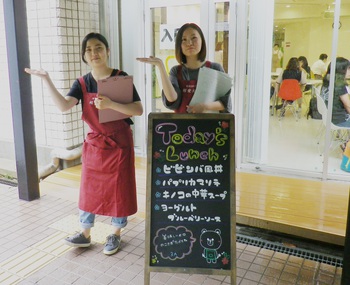 Today's
Lunch
ビビンバ風丼
パプリカマリネ
キノコの中華スープ
ヨーグルト
ブルーベリーソース